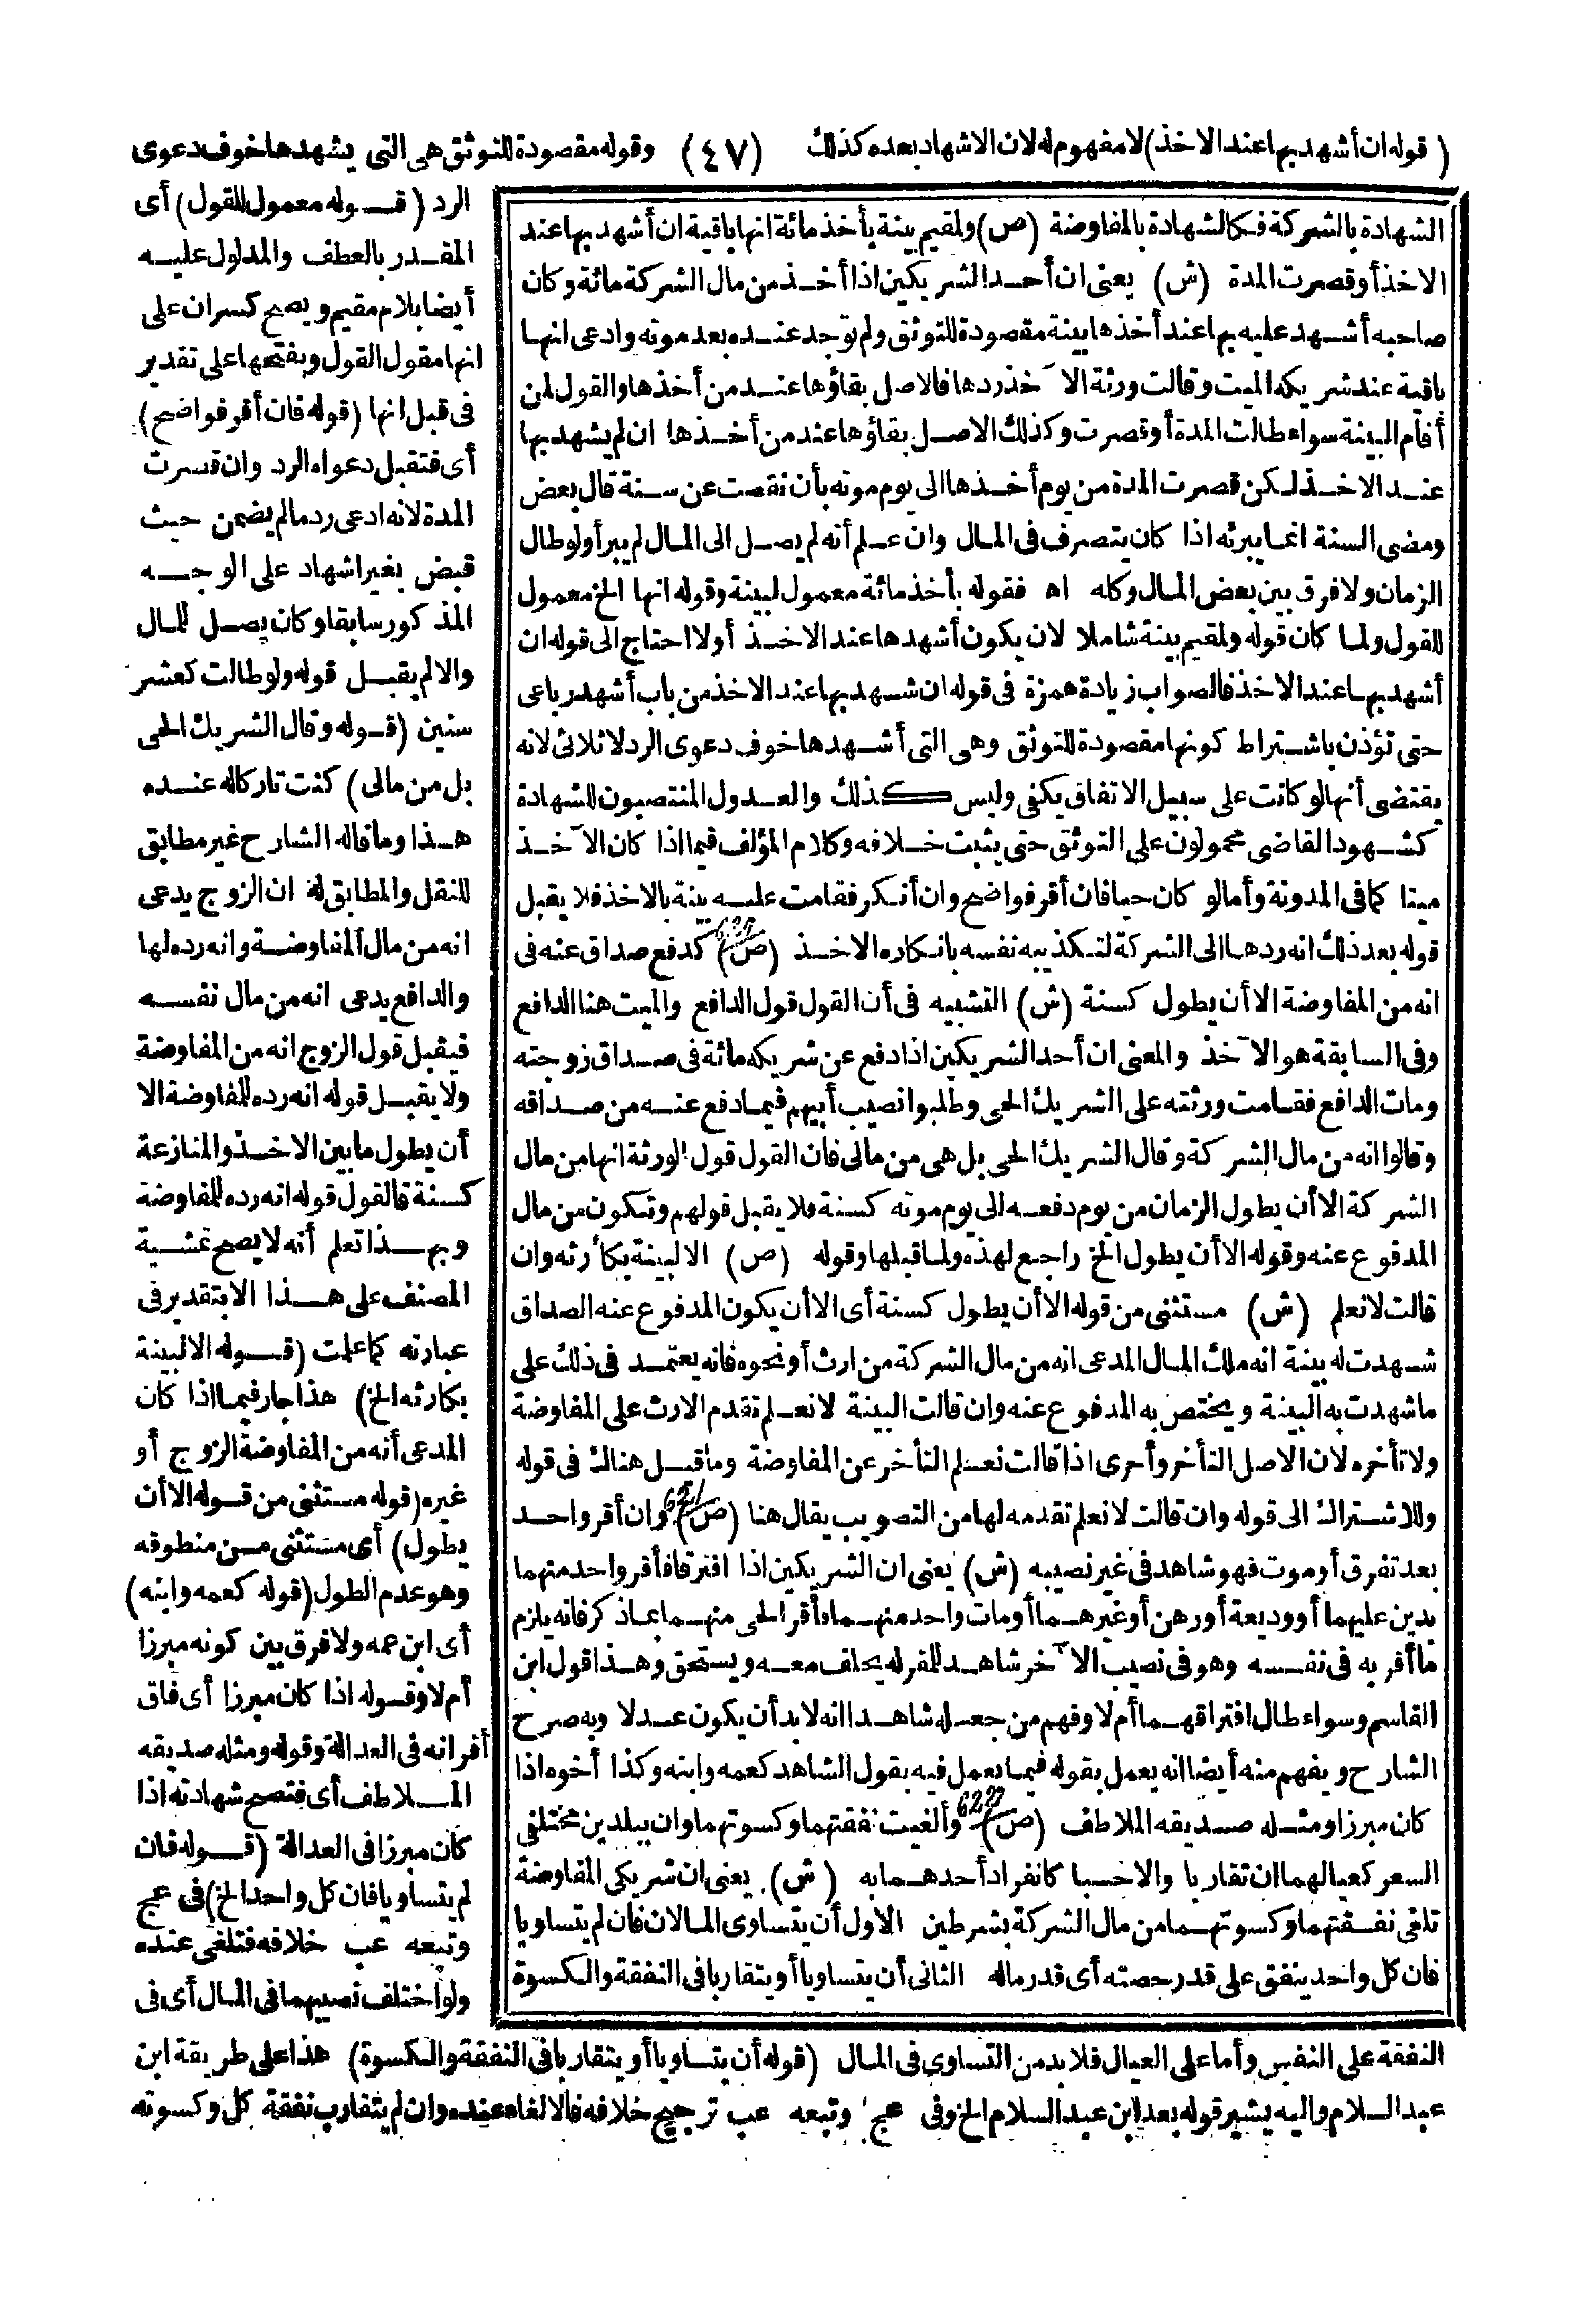 (قوله ان أشهد بها عند الاخذ) لا مفهوم له لان الاشهاد بعده كذلك (٤٧) وقوله مقصودة للتوثق هى التى يشهدها خوف دعوى
الرد (قوله معمول للقول) أى
المقدر بالعطف والمدلول عليه
أيضا بلام مقيم ويصح كسر ان على
انها مقول القول وبفتحها على تقدير
فى قبل انها (قوله فان أقر فواضح)
أى فتقبل دعواه الرد وان قصرت
المدة لانه ادعى رد ما لم يضمن حيث
قبض بغير اشهاد على الوجه
المذكور سابقا وكان يصل للمال
والا لم يقبل قوله ولو طالت كعشر
سنين (قوله وقال الشريك الحى
بل من مالى) كنت تاركا له عنده
هذا وما قاله الشارح غير مطابق
للنقل والمطابق له ان الزوج يدعى
انه من مال المفاوضة وانه رده لها
والدافع يدعى انه من مال نفسه
فيقبل قول الزوج انه من المفاوضة
ولا يقبل قوله انه رده للمفاوضة الا
أن يطول ما بين الاخذ والمنازعة
كسنة فالقول قوله انه رده للمفاوضة
وبهذا تعلم أنه لا يصح تمشية
المصنف على هذا الا بتقدير فى
عبارته كما علمت (قوله الا لبينة
بكارثه الخ) هذا جار فيما اذا كان
المدعى أنه من المفاوضة الزوج أو
غيره (قوله مستثنى من قوله الا أن
يطول) أى مستثنى من منطوقه
وهو عدم الطول (قوله كعمه وابنه)
أى ابن عمه ولا فرق بين كونه مبرزا
أم لا وقوله اذا كان مبرزا أى فاق
أقرانه فى العدالة وقوله ومثله صديقه
الملاطف أى فتصح شهادته اذا
كان مبرزا فى العدالة (قوله فان
لم يتساويا فان كل واحد الخ) فى عج
وتبعه عب خلافه فتلغى عنده
ولو اختلف نصيبهما فى المال أى فى
الشهادة بالشركة فكالشهادة بالمفاوضة (ص) ولمقيم بينة بأخذ مائة انها باقية ان أشهد بها عند
الاخذ أو قصرت المدة (ش) يعنى ان أحد الشريكين اذا أخذ من مال الشركة مائة وكان
صاحبه أشهد عليه بها عند أخذها بينة مقصودة للتوثق ولم توجد عنده بعد موته وادعى انها
باقية عند شريكه الميت وقالت ورثة الآخذ ردها فالاصل بقاؤها عند من أخذها والقول لمن
أقام البينة سواء طالت المدة أو قصرت وكذلك الاصل بقاؤها عند من أخذها ان لم يشهد بها
عند الاخذ لكن قصرت المدة من يوم أخذها الى يوم موته بأن نقصت عن سنة قال بعض
ومضى السنة انما يبرئه اذا كان يتصرف فى المال وان علم أنه لم يصل الى المال لم يبرأ ولو طال
الزمان ولا فرق بين بعض المال وكله اه فقوله بأخذ مائة معمول لبينة وقوله انها الخ معمول
للقول ولما كان قوله ولمقيم بينة شاملا لان يكون أشهدها عند الاخذ أو لا احتاج الى قوله ان
أشهد بها عند الاخذ فالصواب زيادة همزة فى قوله ان شهد بها عند الاخذ من باب أشهد رباعى
حتى تؤذن باشتراط كونها مقصودة للتوثق وهى التى أشهدها خوف دعوى الرد لا ثلاثى لانه
يقتضى أنها لو كانت على سبيل الاتفاق يكفى وليس كذلك والعدول المنتصبون للشهادة
كشهود القاضى محمولون على التوثق حتى يثبت خلافه وكلام المؤلف فيما اذا كان الآخذ
ميتا كما فى المدونة وأما لو كان حيا فان أقر فواضح وان أنكر فقامت عليه بينة بالاخذ فلا يقبل
قوله بعد ذلك انه ردها الى الشركة لتكذيبه نفسه بانكاره الاخذ (ص) كدفع صداق عنه فى
انه من المفاوضة الا أن يطول كسنة (ش) التشبيه فى أن القول قول الدافع والميت هنا الدافع
وفى السابقة هو الآخذ والمعنى ان أحد الشريكين اذا دفع عن شريكه مائة فى صداق زوجته
ومات الدافع فقامت ورثته على الشريك الحى وطلبوا نصيب أبيهم فيما دفع عنه من صداقه
وقالوا انه من مال الشركة وقال الشريك الحى بل هى من مالى فان القول قول الورثة انها من مال
الشركة الا أن يطول الزمان من يوم دفعه الى يوم موته كسنة فلا يقبل قولهم وتكون من مال
المدفوع عنه وقوله الا أن يطول الخ راجع لهذه ولما قبلها وقوله (ص) الا لبينة بكأرثه وان
قالت لا نعلم (ش) مستثنى من قوله الا أن يطول كسنة أى الا أن يكون المدفوع عنه الصداق
شهدت له بينة انه ملك المال المدعى انه من مال الشركة من ارث أو نحوه فانه يعتمد فى ذلك على
ما شهدت به البينة ويختص به المدفوع عنه وان قالت البينة لا نعلم تقدم الارث على المفاوضة
ولا تأخره لان الاصل التأخر وأحرى اذا قالت نعلم التأخر عن المفاوضة وما قيل هناك فى قوله
وللاشتراك الى قوله وان قالت لا نعلم تقدمه لها من التصويب يقال هنا (ص) وان أقر واحد
بعد تفرق أو موت فهو شاهد فى غير نصيبه (ش) يعنى ان الشريكين اذا افترقا فأقر واحد منهما
بدين عليهما أو وديعة أو رهن أو غيرهما أو مات واحد منهما فأقر الحى منهما بما ذكر فانه يلزم
ما أقر به فى نفسه وهو فى نصيب الآخر شاهد للمقر له يحلف معه ويستحق وهذا قول ابن
القاسم وسواء طال افتراقهما أم لا وفهم من جعله شاهدا انه لا بد أن يكون عدلا وبه صرح
الشارح ويفهم منه أيضا انه يعمل بقوله فيما يعمل فيه بقول الشاهد كعمه وابنه وكذا أخوه اذا
كان مبرزا ومثله صديقه الملاطف (ص) وألغيت نفقتهما وكسوتهما وان ببلدين مختلفى
السعر كعيالهما ان تقاربا والا حسبا كانفراد أحدهما به (ش) يعنى ان شريكى المفاوضة
تلغى نفقتهما وكسوتهما من مال الشركة بشرطين الاول أن يتساوى المالان فان لم يتساويا
فان كل واحد ينفق على قدر حصته أى قدر ماله الثانى أن يتساويا أو يتقاربا فى النفقة والكسوة
النفقة على النفس وأما على العيال فلا بد من التساوى فى المال (قوله أن يتساويا أو يتقاربا فى النفقة والكسوة) هذا على طريقة ابن
عبد السلام واليه يشير قوله بعد ابن عبد السلام الخ وفى عج وتبعه عب ترجيح خلافه فالالغاء عنده وان لم يتقارب نفقة كل وكسوته